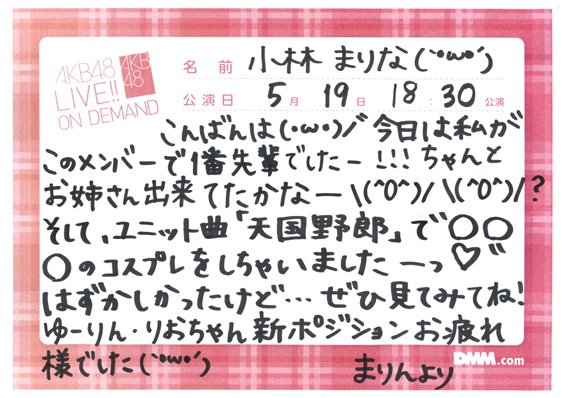 AKB48
LIVE!!
ON DEMAND
AKB
48
名前 小林 まりな(`・ω・´)
公演日 5月 19日 18:30公演
こんばんは(・ω・)/ 今日は私が
このメンバーで1番先輩でしたー!!!ちゃんと
お姉さん出来てたかなー\(^O^)/\(^O^)/?
そして、ユニット曲「天国野郎」で"○○
○のコスプレをしちゃいましたーっ♡"
はずかしかったけど…ぜひ見てみてね!
ゆーりん・りおちゃん新ポジションお疲れ
様でした(`・ω・´)
まりんより
DMM.com